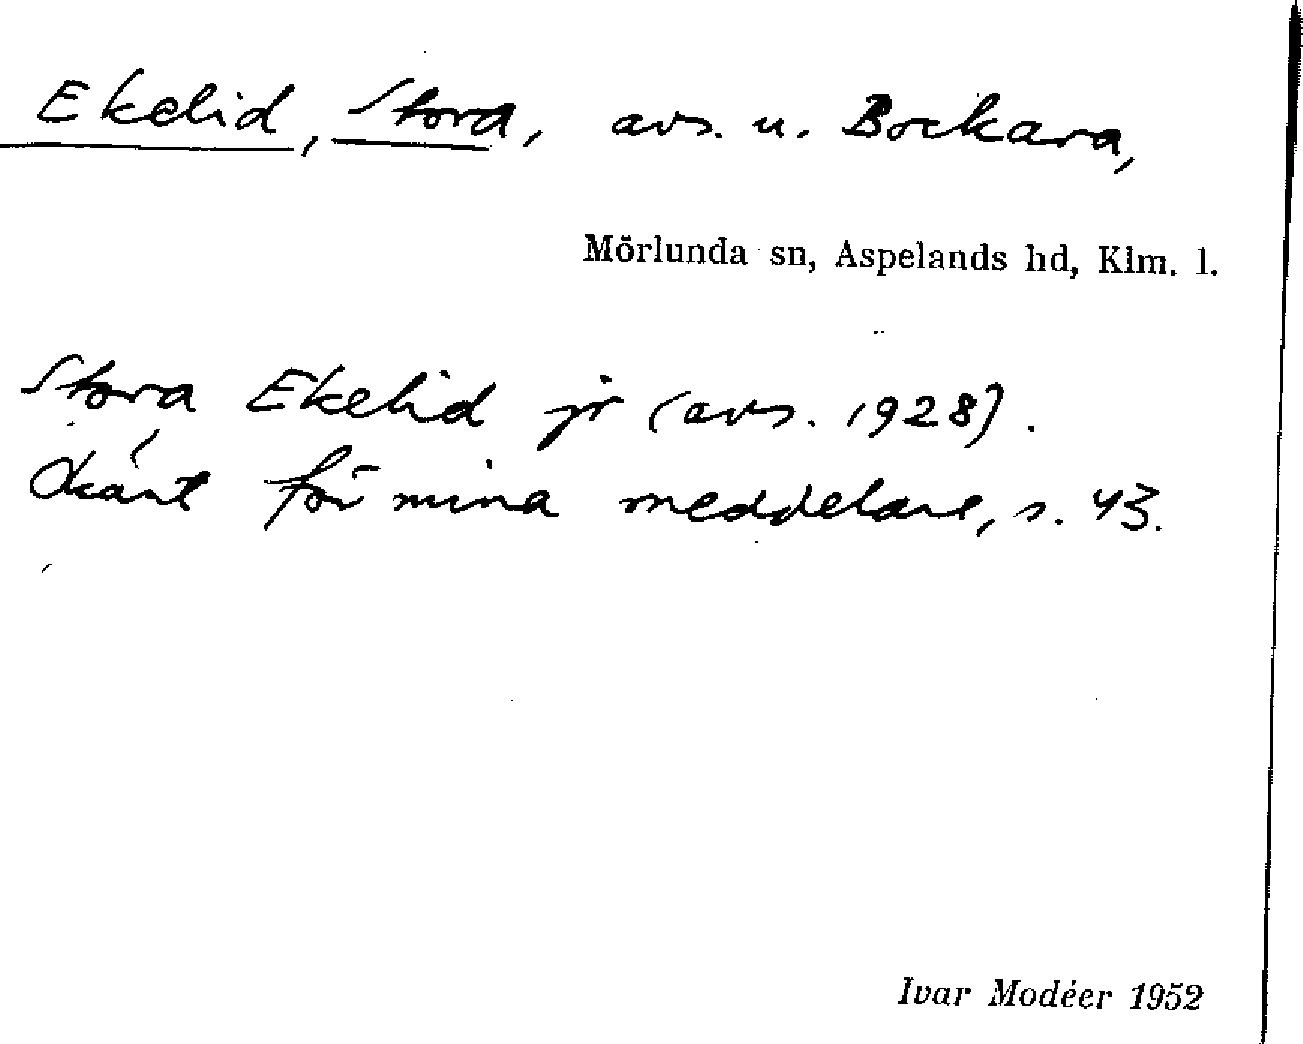 Ekelid, Stora, avs. u. Bockara,
Mörlunda sn, Aspelands hd, Klm. l.
Stora Ekelid jr (avs. 1928).
Okänt för mina meddelare, s. 43.
Ivar Modéer 1952